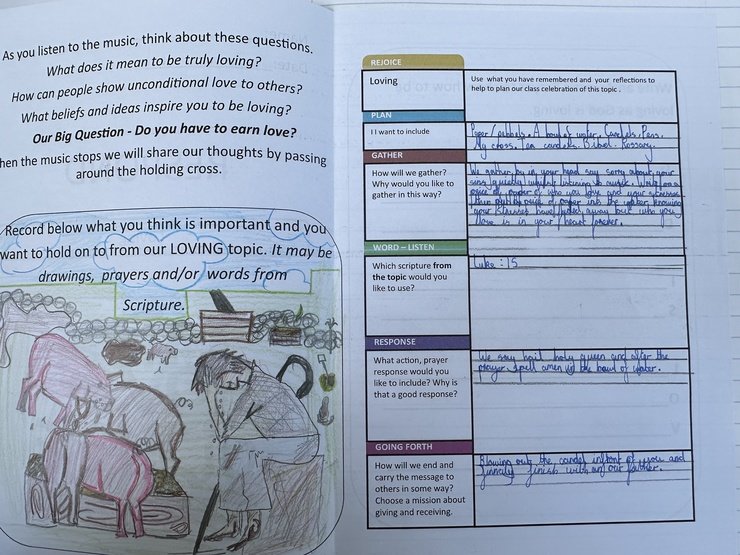 As you listen to the music, think about these questions.
What does it mean to be truly loving?
How can people show unconditional love to others?
What beliefs and ideas inspire you to be loving?
Our Big Question - Do you have to earn love?
hen the music stops we will share our thoughts by passing
around the holding cross.
Record below what you think is important and you
want to hold on to from our LOVING topic. It may be
drawings, prayers and/or words from
Scripture.
REJOICE
Loving
Use what you have remembered and your reflections to
help to plan our class celebration of this topic.
PLAN
I I want to include
Paper / A bowl of water. Candels. Pens.
My cross. Ten candels. Bibel. Rossary.
GATHER
How will we gather?
Why would you like to
gather in this way?
We gather by in your head say sorry about your
sins quietly whilst listening to music. on a
of paper of who you love and your stresses
then put piece of paper into the water knowing
your stresses have away but who you
love is in your heart forever.
WORD – LISTEN
Which scripture from
the topic would you
like to use?
Luke: 15
RESPONSE
What action, prayer
response would you
like to include? Why is
that a good response?
We say hail holy queen and after the
prayer spell amen in the bowl of water.
GOING FORTH
How will we end and
carry the message to
others in some way?
Choose a mission about
giving and receiving.
Blowing out the candel infront of you and
finnaly finish with an our father.